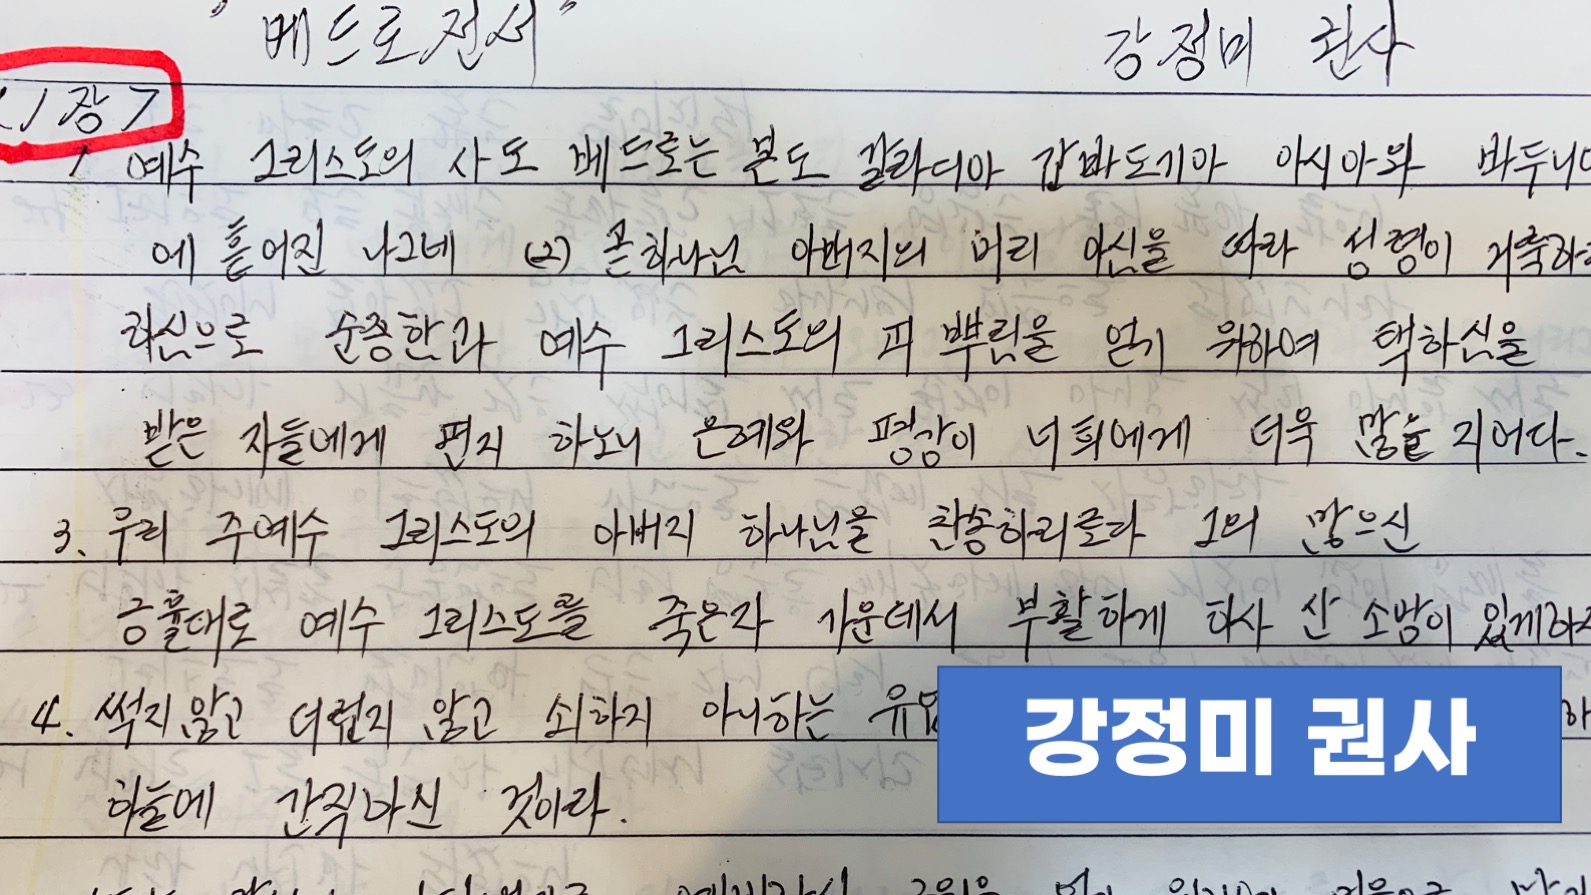 " 베드로전서 " 강정미 권사
< 1장 >
1 예수 그리스도의 사도 베드로는 본도 갈라디아 갑바도기아 아시아와 비두니
에 흩어진 나그네 (2) 곧하나님 아버지의 미리 아심을 따라 성령이 거룩하
하심으로 순종함과 예수 그리스도의 피 뿌림을 얻기 위하여 택하심을
받은 자들에게 편지 하노니 은혜와 평강이 너희에게 더욱 많을 지어다.
3. 우리 주예수 그리스도의 아버지 하나님을 찬송하리로다 그의 많으신
긍휼대로 예수 그리스도를 죽은자 가운데서 부활하게 하사 산 소망이 있게하
4. 썩지않고 더럽지 않고 쇠하지 아니하는 하
하늘에 간직하신 것이라.
강정미 권사